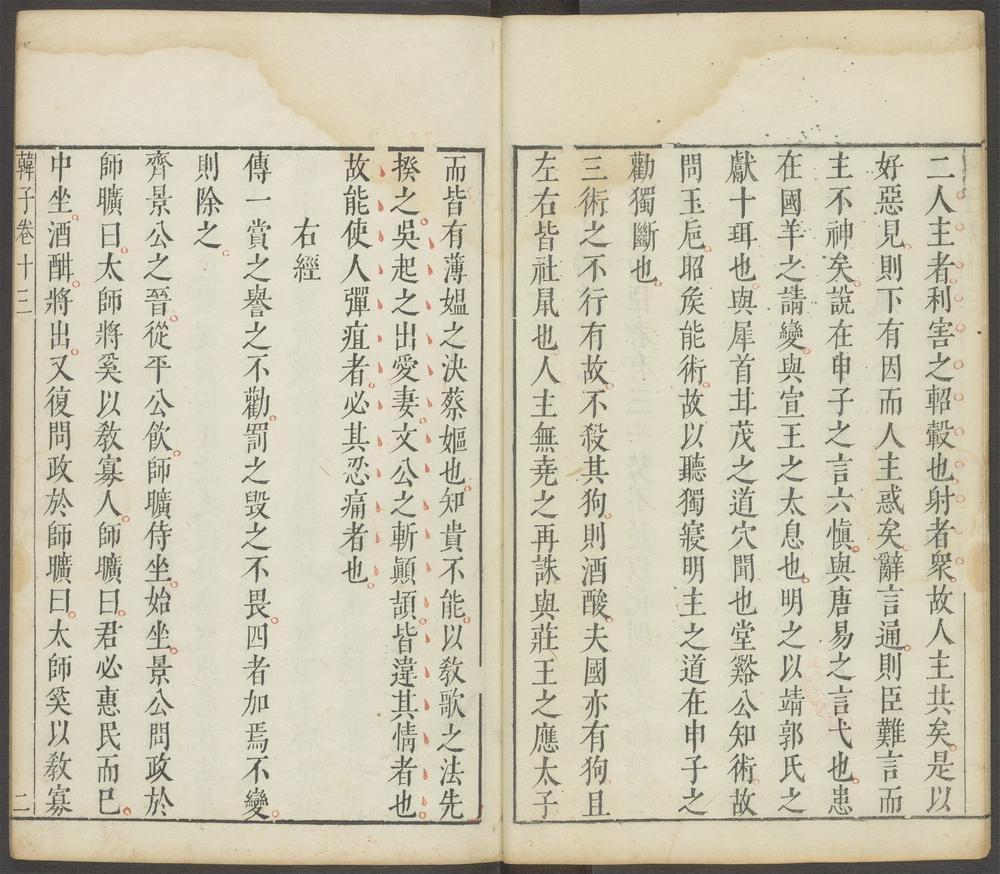 二人主者利害之軺轂也射者衆故人主共矣是以
好惡見則下有因而人主惑矣辭言通則臣難言而
主不神矣說在申子之言六慎與唐易之言弋也患
在國羊之請變與宣王之太息也明之以靖郭氏之
獻十珥也與犀首甘茂之道穴聞也堂谿公知術故
問玉巵昭矦能術故以聽獨寢明主之道在申子之
勸獨斷也
三術之不行有故不殺其狗則酒酸夫國亦有狗且
左右皆社鼠也人主無堯之再誅與莊王之應太子
而皆有薄媪之決蔡嫗也知貴不能以敎歌之法先
揆之吳起之出愛妻文公之斬顚頡皆違其情者也
故能使人彈疽者必其忍痛者也
右經
傳一賞之譽之不勸罰之毁之不畏四者加焉不變
則除之
齊景公之晉從平公飮師曠侍坐始坐景公問政於
師曠曰太師將奚以敎寡人師曠曰君必惠民而已
中坐酒酣將出又復問政於師曠曰太師奚以敎寡
韓子卷十三 二